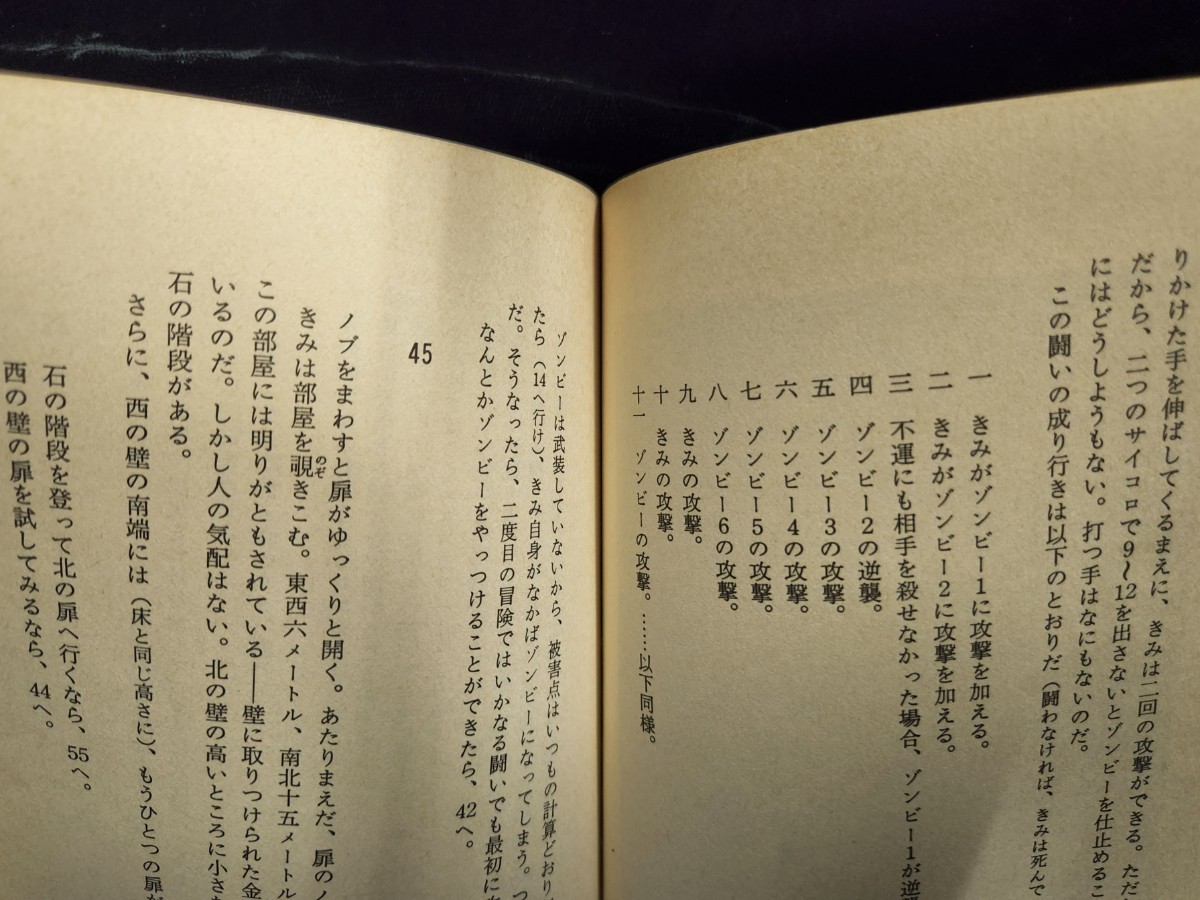 りかけた手を伸ばしてくるまえに、きみは二回の攻撃ができる。ただ
だから、二つのサイコロで9〜12を出さないとゾンビーを仕止めるこ
にはどうしようもない。打つ手はなにもないのだ。
この闘いの成り行きは以下のとおりだ（闘わなければ、きみは死んで
一 きみがゾンビー1に攻撃を加える。
二 きみがゾンビー2に攻撃を加える。
三 不運にも相手を殺せなかった場合、ゾンビー1が逆
四 ゾンビー2の逆襲。
五 ゾンビー3の攻撃。
六 ゾンビー4の攻撃。
七 ゾンビー5の攻撃。
八 ゾンビー6の攻撃。
九 きみの攻撃。
十 きみの攻撃。
十一 ゾンビーの攻撃。……以下同様。
ゾンビーは武装していないから、被害点はいつもの計算どおり
たら（14へ行け）、きみ自身がなかばゾンビーになってしまう。つ
だ。そうなったら、二度目の冒険ではいかなる闘いでも最初に
なんとかゾンビーをやっつけることができたら、42へ。
45
ノブをまわすと扉がゆっくりと開く。あたりまえだ、扉のノ
きみは部屋を覗きこむ。東西六メートル、南北十五メートル
のぞ
この部屋には明りがともされている――壁に取りつけられた金
いるのだ。しかし人の気配はない。北の壁の高いところに小さ
石の階段がある。
さらに、西の壁の南端には（床と同じ高さに）、もうひとつの扉が
石の階段を登って北の扉へ行くなら、55へ。
西の壁の扉を試してみるなら、44へ。